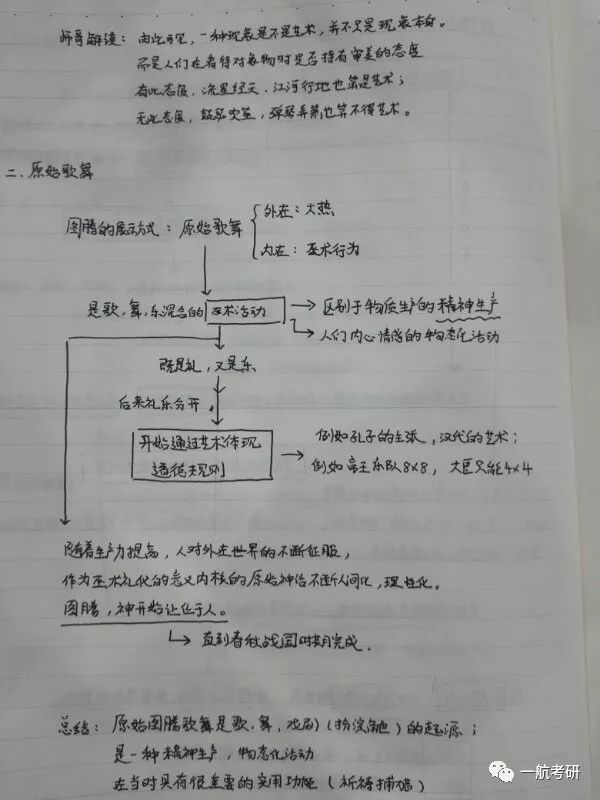 师哥解读：由此可见，一种现象是不是艺术，并不只是现象本身。
而是人们在看待对象物时是否持有审美的态度
有此态度，海墨经天、江河行地也算是艺术；
无此态度，弹琴弄箫也算不得艺术。
二、原始歌舞
图腾的展示方式：原始歌舞
外在：火热
内在：巫术行为
是歌、舞、乐混合的 巫术活动
区别于物质生产的精神生产
人们内心情感的物态化活动
既是礼，又是乐
后来礼乐分开，
开始通过艺术体现
道德规则
例如孔子的主张，汉代的艺术；
例如帝王乐队8×8，大臣只能4×4
随着生产力提高，人对外在世界的不断征服，
作为巫术礼仪的意义内核的原始神话不断人间化，理性化。
图腾，神开始让位于人。
直到春秋战国时期完成．
总结：原始图腾歌舞是歌、舞，戏剧（扮演角色）的起源；
是一种精神生产，物态化活动
在当时具有很重要的实用功能（祈祷捕猎）
一航考研